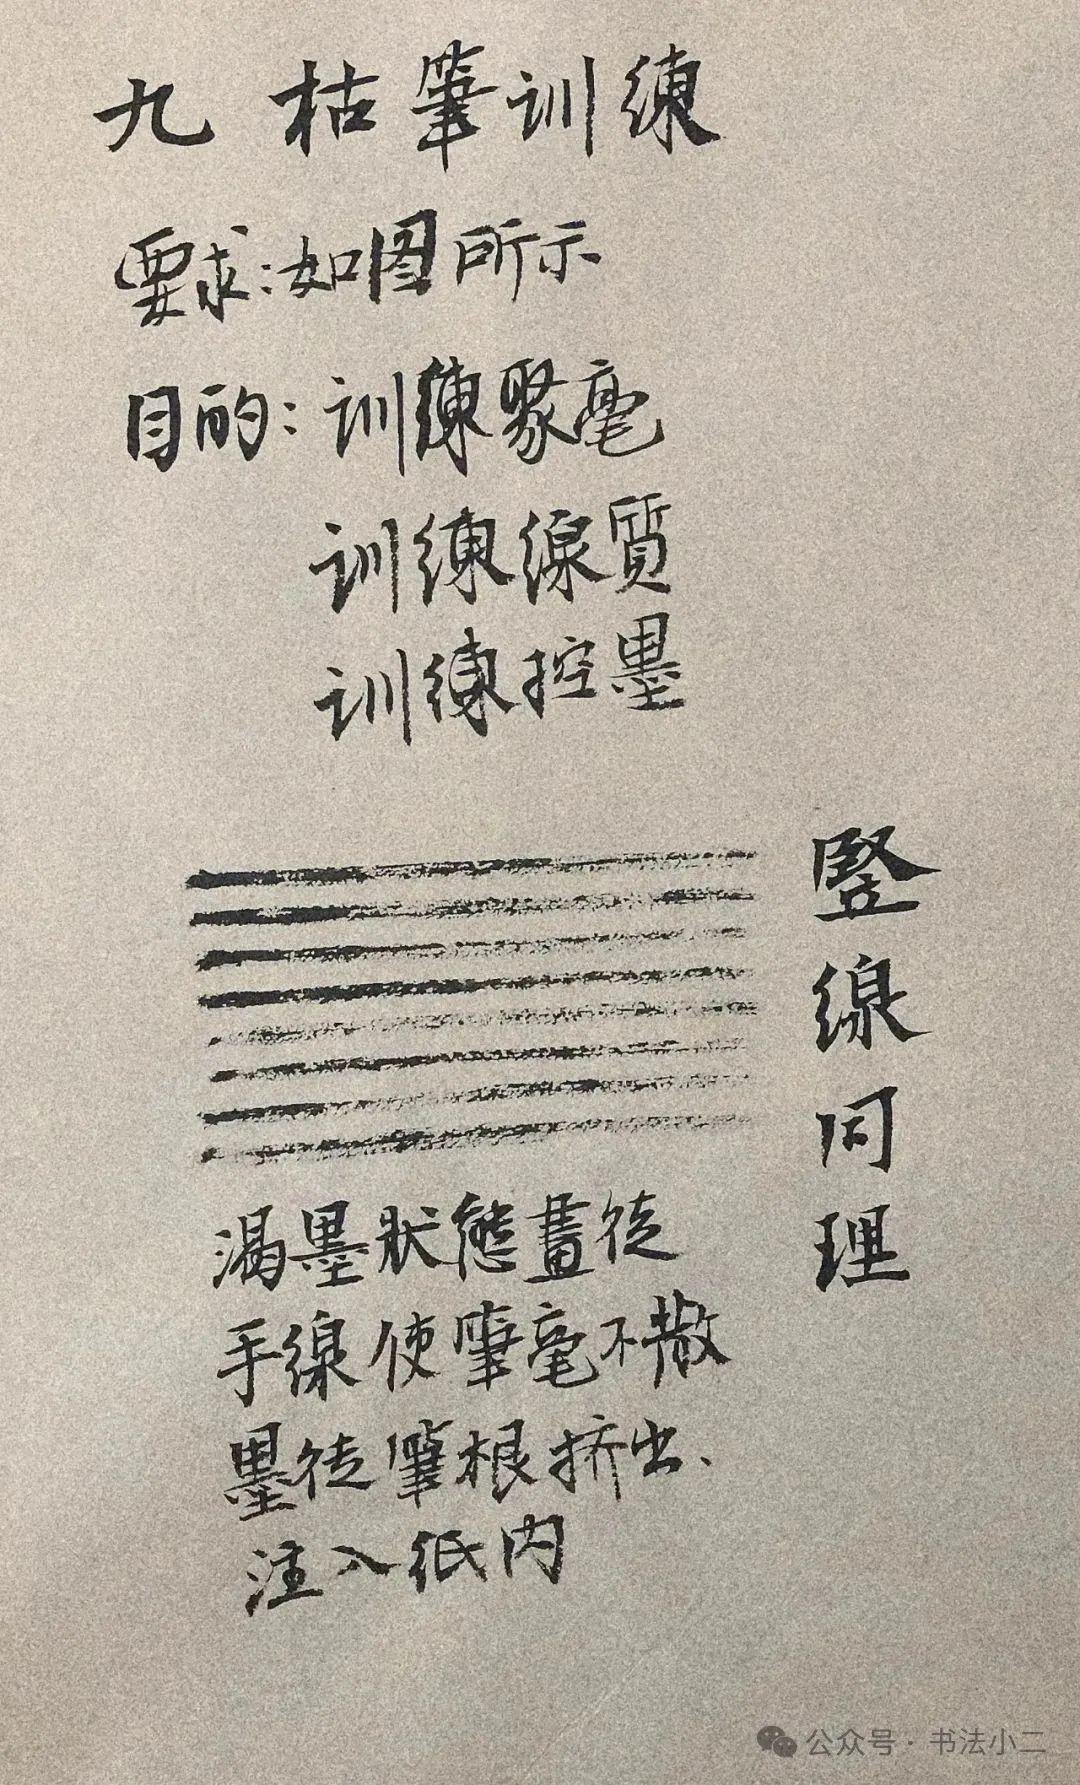 九 枯筆训練
要求:如图所示
目的:训練聚毫
训練線質
训練控墨
竪線同理
渴墨狀態畫徒
手線使筆毫不散
墨從筆根挤出、
注入纸内
公众号·书法小二